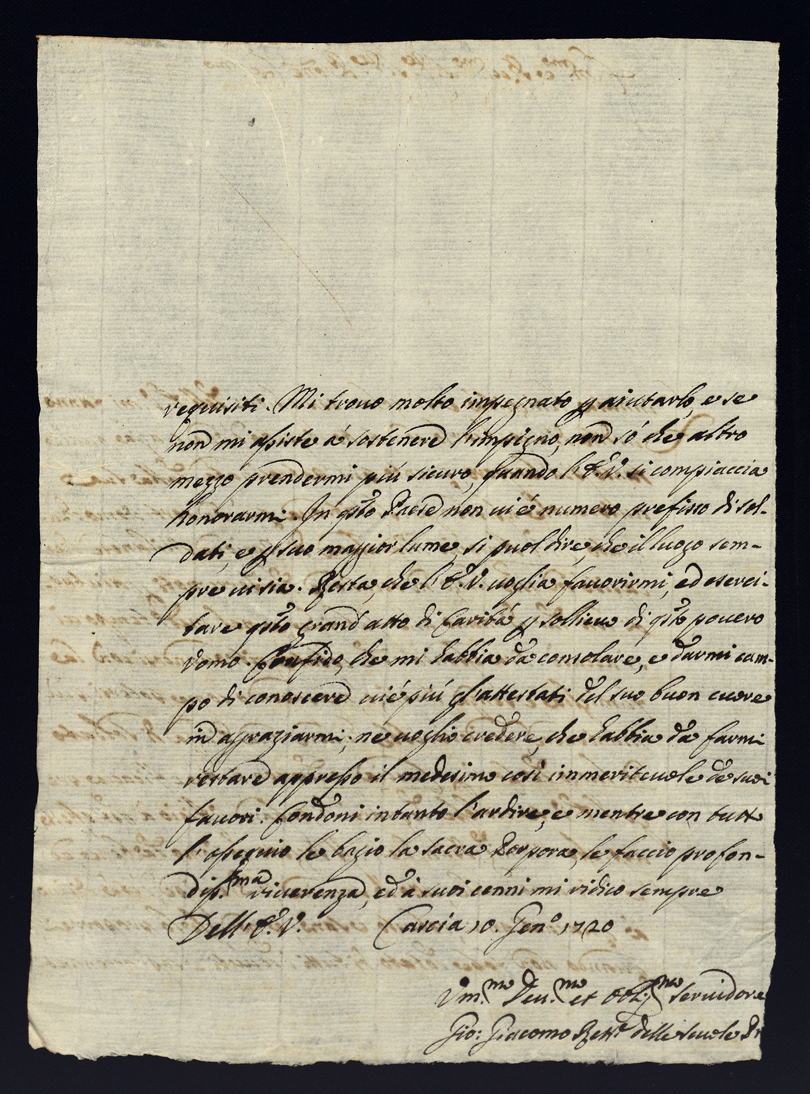 requisiti. Mi trovo molto impegnato p aiutarlo, e se
non mi assiste à sostenere l'impegno, non sò che altro
mezzo prendermi più sicuro, quando l'E.V. si compiaccia
honorarmi. In qsto Paese non vi è numero prefisso di sol-
dati, e p suo maggior lume, si puol dire, che il luogo sem-
pre vi sia. Resta, che l'E.V. voglia favorirmi, ed eserci-
tare qsto grand'atto di Carità p sollievo di qsto povero
Vomo. Confido, che mi habbia da consolare, e darmi cam-
po di conoscere vie più gl'attestati del suo buon cuore
in aggraziarmi, ne voglio credere, che habbia da farmi
restare appresso il medesimo così immeritevole de suoi
favori. Condoni intanto l'ardire, e mentre con tutt
l'ossequio le bagio la sacra Porpora, le faccio profon-
diss.ma riverenza, ed a suoi cenni mi ridico sempre
Dell'E.V. Cascia 10. Gen.o 1720
Vm.mo Dev.mo et Obl.mo Servidore
Gio: Giacomo delle Scuole